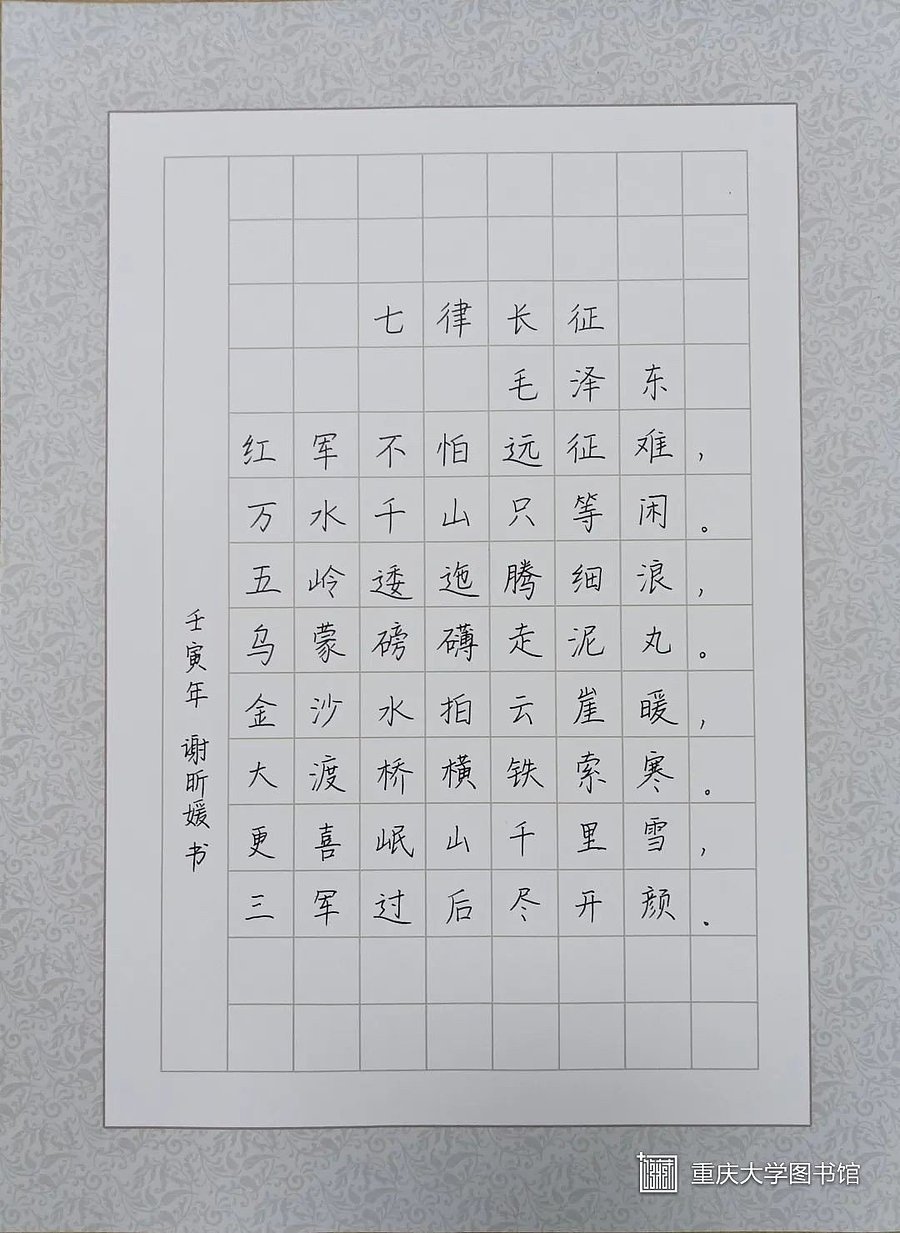 七律长征
毛泽东
红军不怕远征难，
万水千山只等闲。
五岭逶迤腾细浪，
乌蒙磅礴走泥丸。
金沙水拍云崖暖，
大渡桥横铁索寒。
更喜岷山千里雪，
三军过后尽开颜.
壬寅年 谢昕媛书
重庆大学图书馆